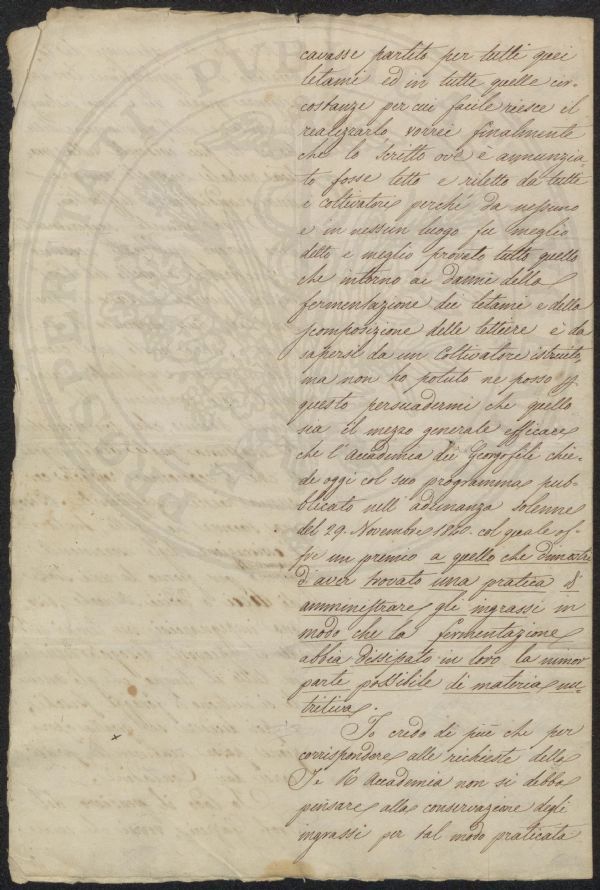 cavasse partito per tutti quei
letami ed in tutte quelle cir-
costanze per cui facile riesce il
realizzarlo vorrei finalmente
che lo scritto ove è annunzia
to fosse letto e riletto da tutti
i coltivatori perché da nessuno
e in nessun luogo fu meglio
detto e meglio provato tutto quello
che intorno ai danni della
fermentazione dei letami e della
scomposizione delle lettiere è da
sapersi da un Coltivatore istruito,
ma non ho potuto ne posso
questo persuadermi che quello
sia il mezzo generale efficace
che l'Accademia dei Georgofili chie-
de oggi col suo programma pub-
blicato nell'adunanza solenne
del 29. Novembre col quale of-
fre un premio a quello che dimostri
d'aver trovato una pratica di
amministrare gli ingrassi in
modo che la fermentazione
abbia dissipato in loro la minor
parte possibile di materia nu-
tritiva.
Io credo di più che per
corrispondere alle richieste della
I e R Accademia non si debba
pensare alla conservazione degli
ingrassi per tal modo praticata
PROSPERITATI PUB